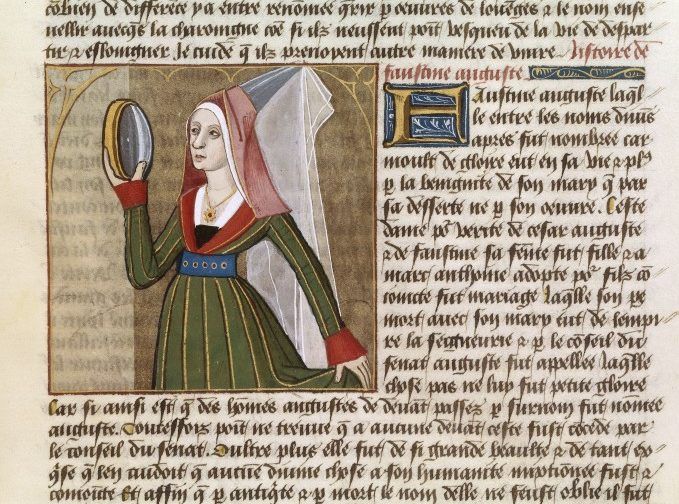 combien de differēce y a entre renōmee q̄rir p̄ oeuures de louēges ⁊ le nom ense
uellir auecq̄s la charoingne cōe si ilz neussent poīt vesqueu de la vie de despar
tir ⁊ eslonguer Je cuide q̄ ilz prenoyent autre maniere de viure. Listoire de
faustine auguste
Faustine auguste laq̄l
le entre les noms diuīs
apres fut nombree car
moult de gloire eut en sa vie ⁊ pl9
p̄ la benignite de son mary q̄ par
sa desserte ne p̄ son oeuure. Ceste
dame po2 verite de cesar auguste
⁊ de faustine sa fēme fut fille ⁊ a
marc anthoine adopte po2 filz cō
ioincte fut mariage laq̄lle son pe
mort auec son mary eut de lempi
re la seigneurie ⁊ p̄ le cōseil du
senat auguste fut appellee laq̄lle
chose pas ne luy fut petite gloire
Car si ainsi est q̄ des hōmes augustes de deuāt passez p̄ surnom furēt nōmez
auguste. Toutesfoys poīt ne treuue q̄ a aucune deuāt ceste fust cōcede par
le conseil du senat. Oultre plus elle fut de si grande beaulte ⁊ de tant
q̄se q̄ len cuidoit q̄ aucūe diuīne chose a son humanite mixtionee fust ⁊
Et affin q̄ p̄ antiq̄te ⁊ p̄ mort le nom delle ne feust oblie il fut